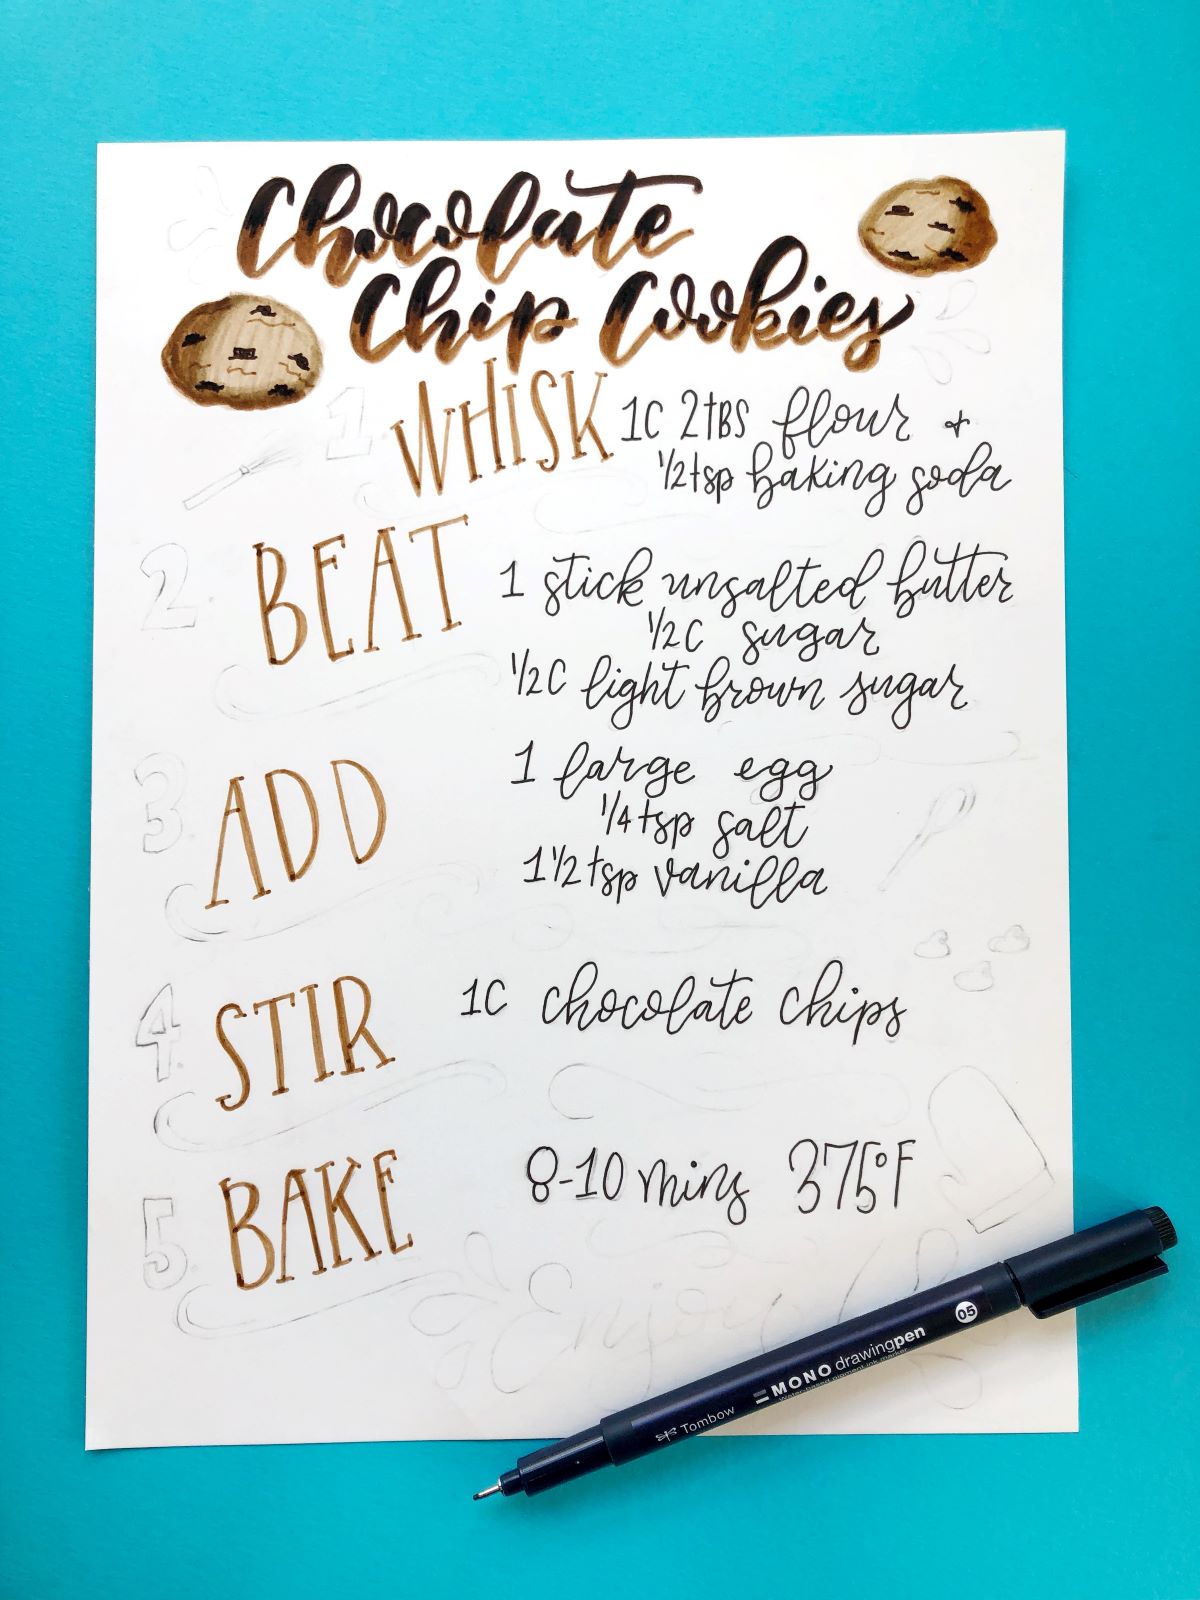 Chocolate
Chip Cookies
1. WHISK 1C 2tBS flour +
1/2tsp baking soda
2. BEAT 1 stick unsalted butter
1/2C sugar
1/2C light brown sugar
3. ADD 1 large egg
1/4tsp salt
1 1/2tsp vanilla
4. STIR 1C chocolate chips
5. BAKE 8-10 mins 375°F
Enjoy!
Tombow MONO drawingpen 05
Water-based pigment ink marker